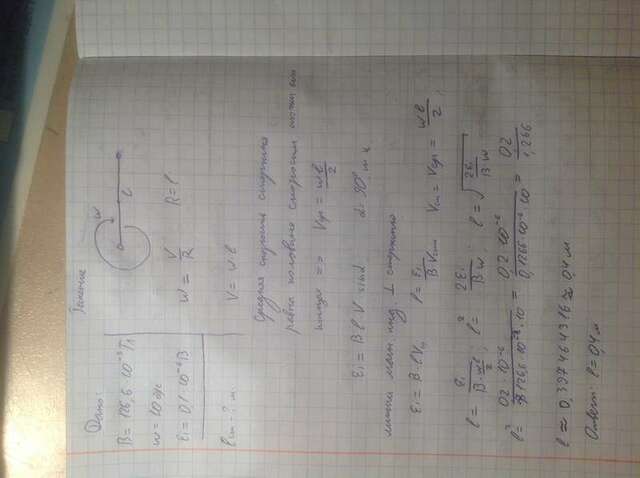 Дано:
B = 126,6 · 10⁻³ Тл
w = 10 рус
εi = 0,1 · 10⁻⁶ В
l ст - ? м.
Решение
w
l
w = V/R R = l
V = w l
Средняя скорость стержня
равна половине скорости точки его
конца => Vср = wl/2
εi = B l · V sin α α = 90° т.к
линии магн. инд. ⊥ стержню
εi = B · l Vп l = εi/B Vст Vст = Vср = wl/2 ;
l = εi/B · wl/2 ; l² = 2εi/B w ; l = √2εi/B w
l² = 0,2 · 10⁻⁶/0,1266 · 10⁻⁶ · 10 = 0,2 · 10⁻⁶/0,1266 · 10⁻⁶ · 10 = 0,2/1,266
l ≈ 0,397464316 ≈ 0,4 м
Ответ: l = 0,4 м